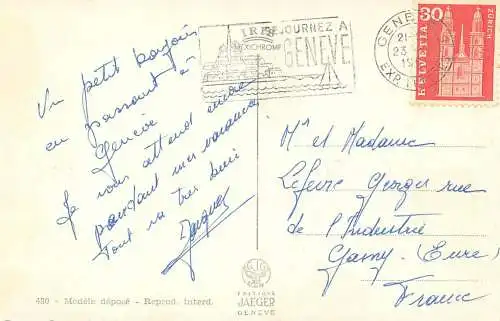 Un petit bonjour
en passant à
Genève
Je vous attend encore
pendant mes vacances
Tout va très bien
Jacques
IRIS
MEXICHROME
SEJOURNEZ A
GENEVE
GENEVE
21-
23
19
EXP.
30
HELVETIA
ZÜRICH
Mr et Madame
Lefevre Georges rue
de l'Industrie
Gasny (Eure)
France
430 - Modèle déposé - Reprod. interd.
EDITIONS
JAEGER
GENÈVE